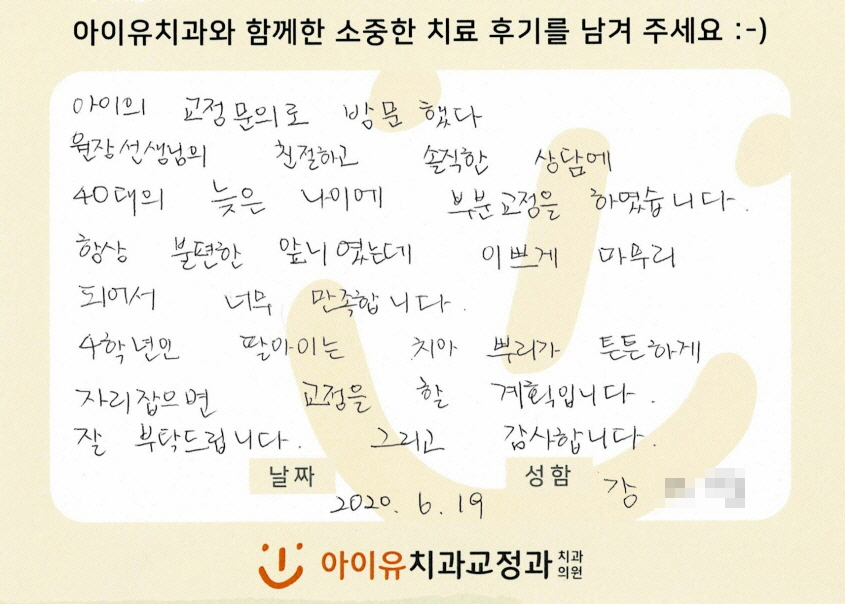 아이유치과와 함께한 소중한 치료 후기를 남겨 주세요 :-)
아이의 교정문의로 방문했다
원장선생님의 친절하고 솔직한 상담에
40대의 늦은 나이에 부분교정을 하였습니다.
항상 불편한 앞니였는데 이쁘게 마무리
되어서 너무 만족합니다.
4학년인 딸아이는 치아 뿌리가 튼튼하게
자리잡으면 교정을 할 계획입니다.
잘 부탁드립니다. 그리고 감사합니다.
날짜 성함 강
2020. 6. 19
아이유치과교정과 치과의원